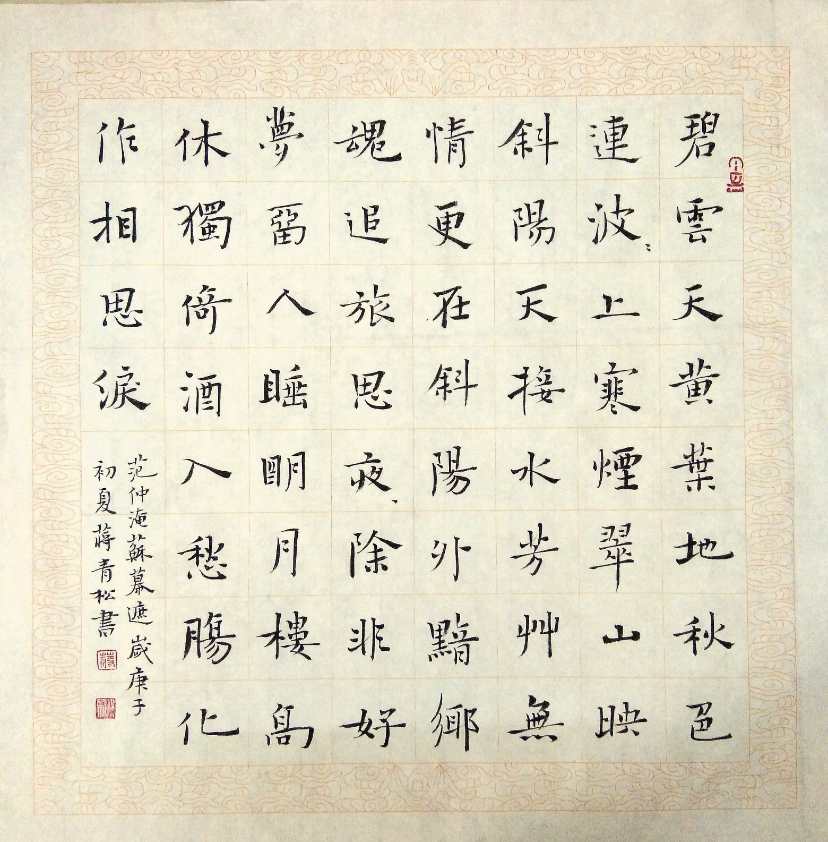 碧雲天黄葉地秋色
連波〻上寒煙翠山映
斜陽天接水芳艸無
情更在斜陽外黯鄉
魂追旅思夜、除非好
夢畱人睡眀月樓高
休獨倚酒入愁腸化
作相思淚
范仲淹蘇幕遮歲庚子
初夏蔣青松書